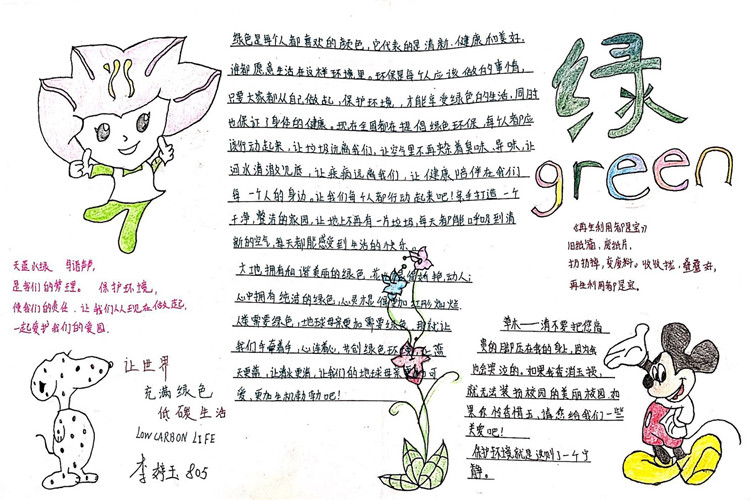 绿色是每个人都喜欢的颜色,它代表的是清新、健康和美好,
谁都愿意生活在这样环境里。环保是每个人应该做的事情,
只要大家都从自己做起,保护环境,才能享受绿色的生活,同时
也保订了身体的健康。现在全国都在提倡绿色环保,每个人都应
该行动起来,让垃圾远离我们,让空气里不再夹着臭味、异味,让
河水清澈见底,让疾病远离我们,让健康陪伴在我们
每一个人的身边,让我们每个人都行动起来吧!亲手打造一个
干净,整洁的家园,让地上不再有一片垃圾,每天都能呼吸到清
新的空气,每天都能感受到生活的快乐。
大地拥有和谐美丽的绿色,花
动人;
心中拥有纯洁的绿色,心灵才
人类需要绿色,地球母亲更加需要绿色,那就让
我们手牵着手,心连着心,共创绿色环
蓝
天更蓝,让清水更清,让我们的地球母亲更
可
爱,更加生机勃勃吧!
绿
green
《再生利用都是宝》
旧纸箱,废纸片,
扔扔掉,
收收拢,叠叠齐,
再生利用都是宝。
天蓝水绿
是我们的梦理。 保护环境,
使我们的责任。让我们从现在做起,
一起爱护我们的爱园。
草木——请不要把您宝
贵的脚压在我的身上,因为我
也会哭泣的。如果我看消玉损,
就无法装扮校园的美丽校园,如
果你怜香惜玉,请您给我们一些
关爱吧!
保护环境就是
一个宁
静。
让世界
充满绿色
低碳生活
LOW CARBON LIFE
李
玉 805